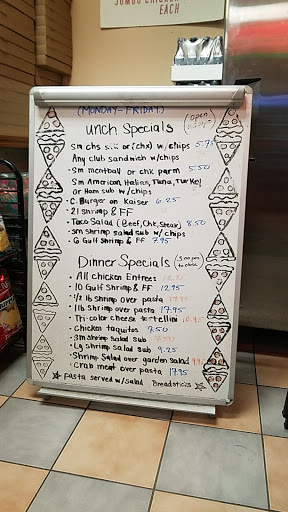 JUMBO CHICKEN
EACH
(MONDAY-FRIDAY)
unch Specials (open
Sm chs w/chips 5.75
Any club sandwich w/chips
Sm meatball or chk parm 5.50
Sm American, Italian, Tuna, Turkey
or Ham sub w/chips
C. Burger on Kaiser 6.25
21 shrimp & FF
Taco Salad (Beef, Chk, Steak) 8.50
Sm shrimp salad sub w/chips
6 Gulf Shrimp & FF 7.95
Dinner Specials
All chicken Entrees
10 Gulf Shrimp & FF 12.95
1/2 lb shrimp over pasta
1 lb shrimp over pasta 17.95
Tri-color cheese tortellini
Chicken taquitos 7.50
Sm shrimp salad sub
Lg shrimp salad sub 9.25
Shrimp Salad over garden salad
Crab meat over pasta 17.95
pasta served w/salad Breadsticks